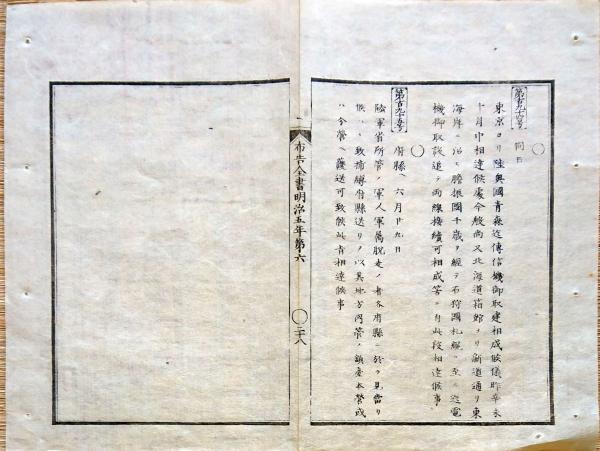 第百九十六号
同日
東京ヨリ陸奥國青森迄傳信機御取建相成候儀昨辛未
十月中相達候處今般尚又北海道箱館ヨリ新道通リ東
海岸ニ沿ヒ膽振國千歳ヲ経テ石狩國札幌ニ至ル迄電
機御取設追テ両線接續可相成筈ニ有之此段相達候事
第百九十五号
府縣ヘ 六月廿九日
陸軍省所管ノ軍人軍属脱走ノ者各府縣ニ於テ見當リ
候ハヽ致捕縛府縣送リヲ以其地方所管ノ鎮臺本營或
ハ分營ヘ護送可致候此旨相達候事
布告全書明治五年第六
二十八